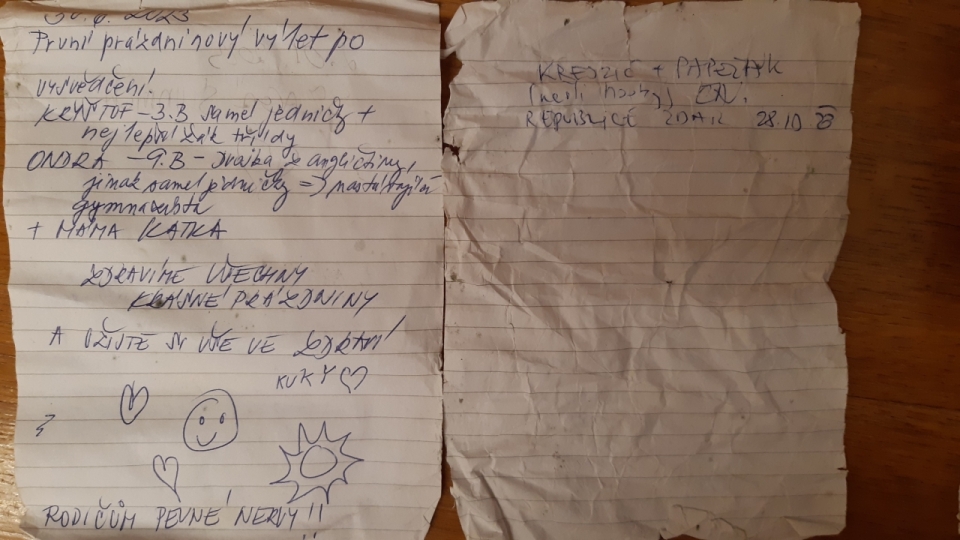 30.6.2023
První prázdninový výlet po
vysvědčení!
KRYŠTOF – 3.B samé jedničky +
nejlepší žák třídy
ONDRA – 9.B – dvojka z angličtiny,
jinak samé jedničky =>
gymnazista
+ MÁMA KATKA
ZDRAVÍME VŠECHNY
KRÁSNÉ PRÁZDNINY
A UŽIJTE SI VŠE VE ZDRAVÍ
KUKY
RODIČŮM PEVNÉ NERVY!!
+
REPUBLICE ZDAR 28.10